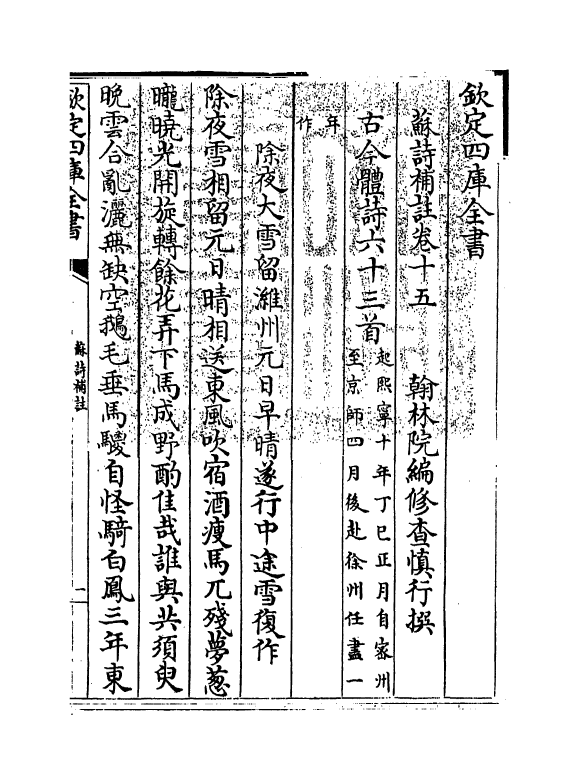 欽定四庫全書
蘇詩補註卷十五　翰林院編修查慎行撰
古今體詩六十三首
起熙寧十年丁巳正月自密州
至京師四月後赴徐州任盡一
年
作
除夜大雪留濰州元日早晴遂行中途雪復作
除夜雪相留元日晴相送東風吹宿酒瘦馬兀殘夢蔥
曨曉光開旋轉餘花弄下馬成野酌佳哉誰與共須臾
晚雲合亂灑無缺空鵝毛垂馬騣自怪騎白鳳三年東
欽定四庫全書
蘇詩補註
一